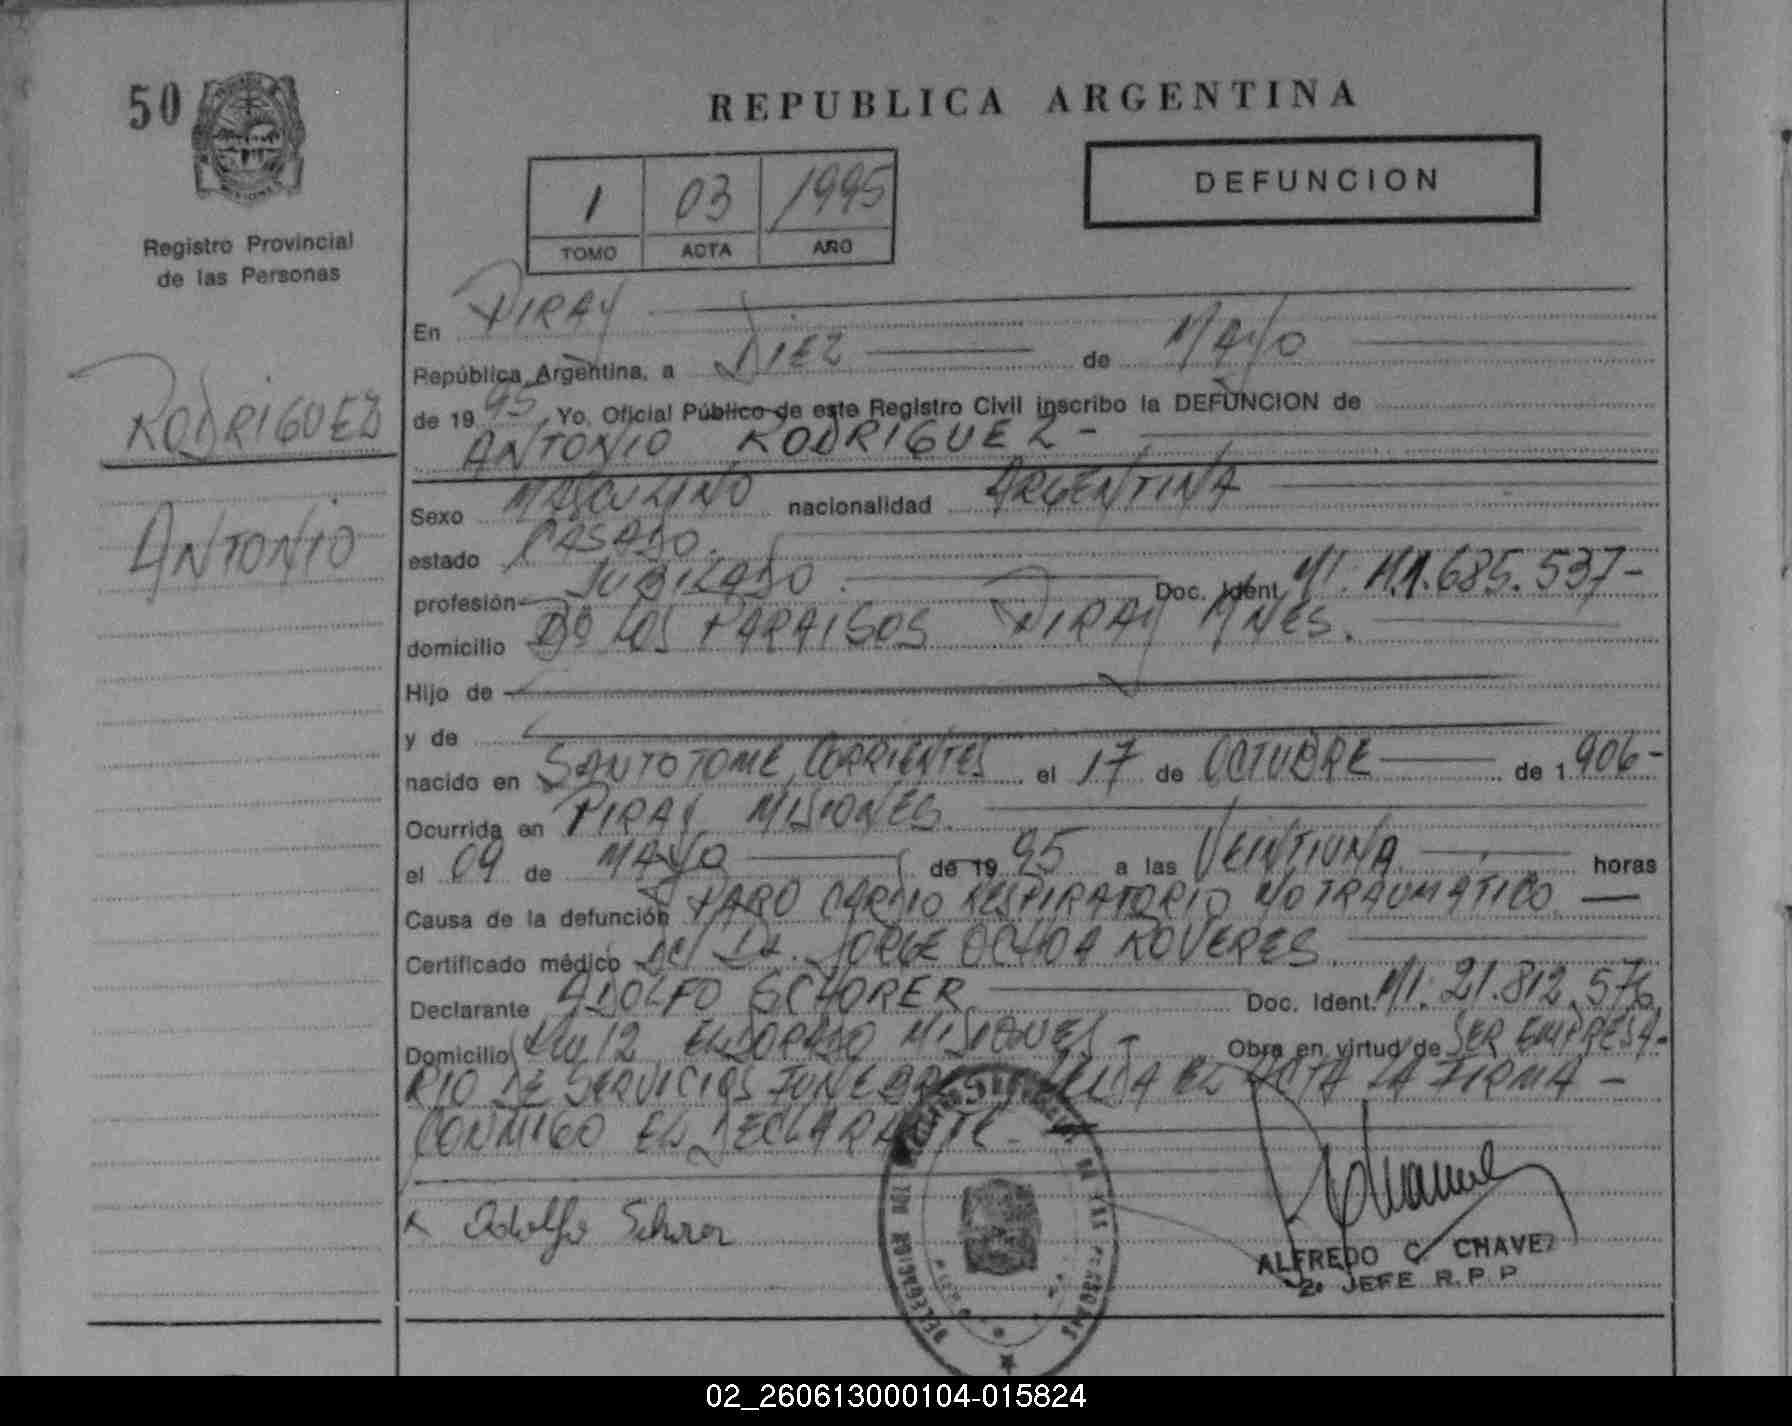 50
REPUBLICA ARGENTINA
DEFUNCION
1 03 1995
TOMO ACTA AÑO
Registro Provincial
de las Personas
RODRIGUEZ
ANTONIO
En PIRAY
República Argentina, a DIEZ de MAYO
de 1995, Yo, Oficial Público de este Registro Civil inscribo la DEFUNCION de
ANTONIO RODRIGUEZ -
Sexo MASCULINO nacionalidad ARGENTINA
estado CASADO.
profesión JUBILADO. Doc. Ident. M.I. .685.537-
domicilio Bº LOS PARAISOS PIRAY MNES.
Hijo de
y de
nacido en SANTO TOME, CORRIENTES el 17 de OCTUBRE de 1.906-
Ocurrida en PIRAY MISIONES.
el 09 de MAYO de 1995 a las VEINTIUNA horas
Causa de la defunción PARO CARDIO RESPIRATORIO NO TRAUMATICO
Certificado médico DEL Dr. JORGE OCHOA ROVERES
Declarante ADOLFO SCHORER Doc. Ident. M.I. 21.812.576
Domicilio Km 12 ELDORADO MISIONES - Obra en virtud de SER EMPRESA-
RIO DE SERVICIOS FUNEBRES LEIDA EL ACTA LA FIRMA -
CONMIGO EL DECLARANTE -
x Adolfo Schorer
ALFREDO C. CHAVEZ
2º JEFE R.P.P.
DELEGACION
DE LAS PERSONAS
02_260613000104-015824